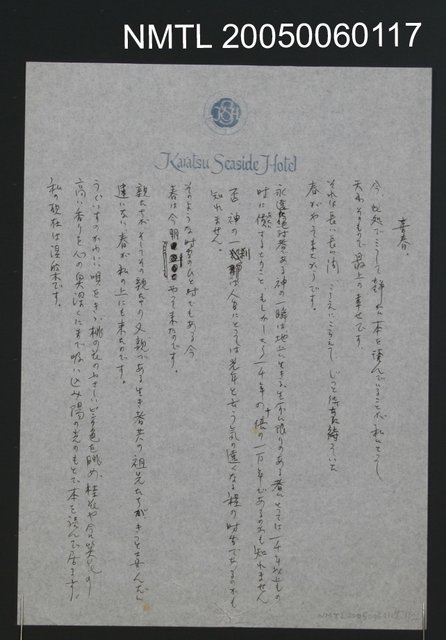 NMTL 20050060117
Karatsu Seaside Hotel
青春
今、此処でこうして静かに本を読んでいることが、私にとって
天水そのもので最上の幸せです。
それは長い長い間 こらえにこらえて じっと待ち続けていた
春がやって来たからです。
永遠 絶対者である神の一瞬は地上に生きる 限りのある者にとっては一千年以上もの
時に価する もしかしたら一千年の十倍の一万年であるのかも知れません
否 神の一刹那は人間にとっては光年と云う気の遠くなる程の時空であるのかも
知れません。
そのような時のひと時でもある今
春は今 やって来たのです。
親たちがそしてその親たちの父親である生き者共の祖先たちがきっと
違いない春が私の上にも来たのです。
うぐいすのかわいい唄をきゝ 桃の花のやさしいピンク色を眺め、
高い香りを心の奥深くにまで吸い込み陽の光のもとで本を読んで居ます。
私の現在は
NMTL 20050060117